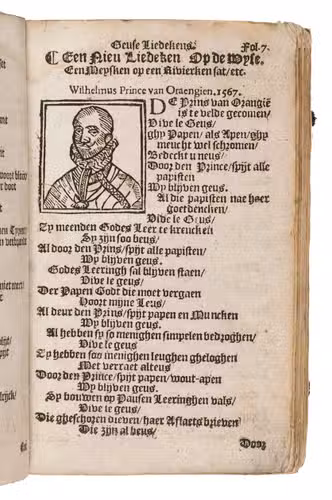 Geuse Liedekens. Fol. 7.
Een Nieu Liedeken Op de Wyse.
Een Meysken op een Rivierken sat/ etc.
Wilhelmus Prince van Oraengien. 1567.
DE Prins van Orangië
is te velde gecomen/
Vive le Geus/
ghy Papen/ als Apen/ ghy
meucht wel schromen/
Bedeckt u neus/
Door den Prince/ spijt alle
papisten
Wy blijven geus.
Al die papisten nae hoer
goetdencken/
Vive le Geus/
Sy meenden Godes Leer te krencken
Sy zijn soo beus/
Al door den Prins/ spijt alle papisten/
Wy blijven geus.
Godes Leeringh sal blijven staen/
Vive le geus/
Der Papen Godt die moet vergaen
Hoort mijne Leus/
Al deur den Prins/ spijt papen en Muncken
Wy blijven geus.
Al hebben sy so menighen simpelen bedroghen/
Vive le geus
Sy hebben soo menighen leughen gheloghen
Met verraet alteus
Door den Prince/ spijt papen/ wout-apen
Wy blyven geus.
Sy bouwen op Pausen Leeringhen vals/
Vive le geus/
Die gheschoren dieven/ haer Aflaets brieven
Die zijn al beus/
Door